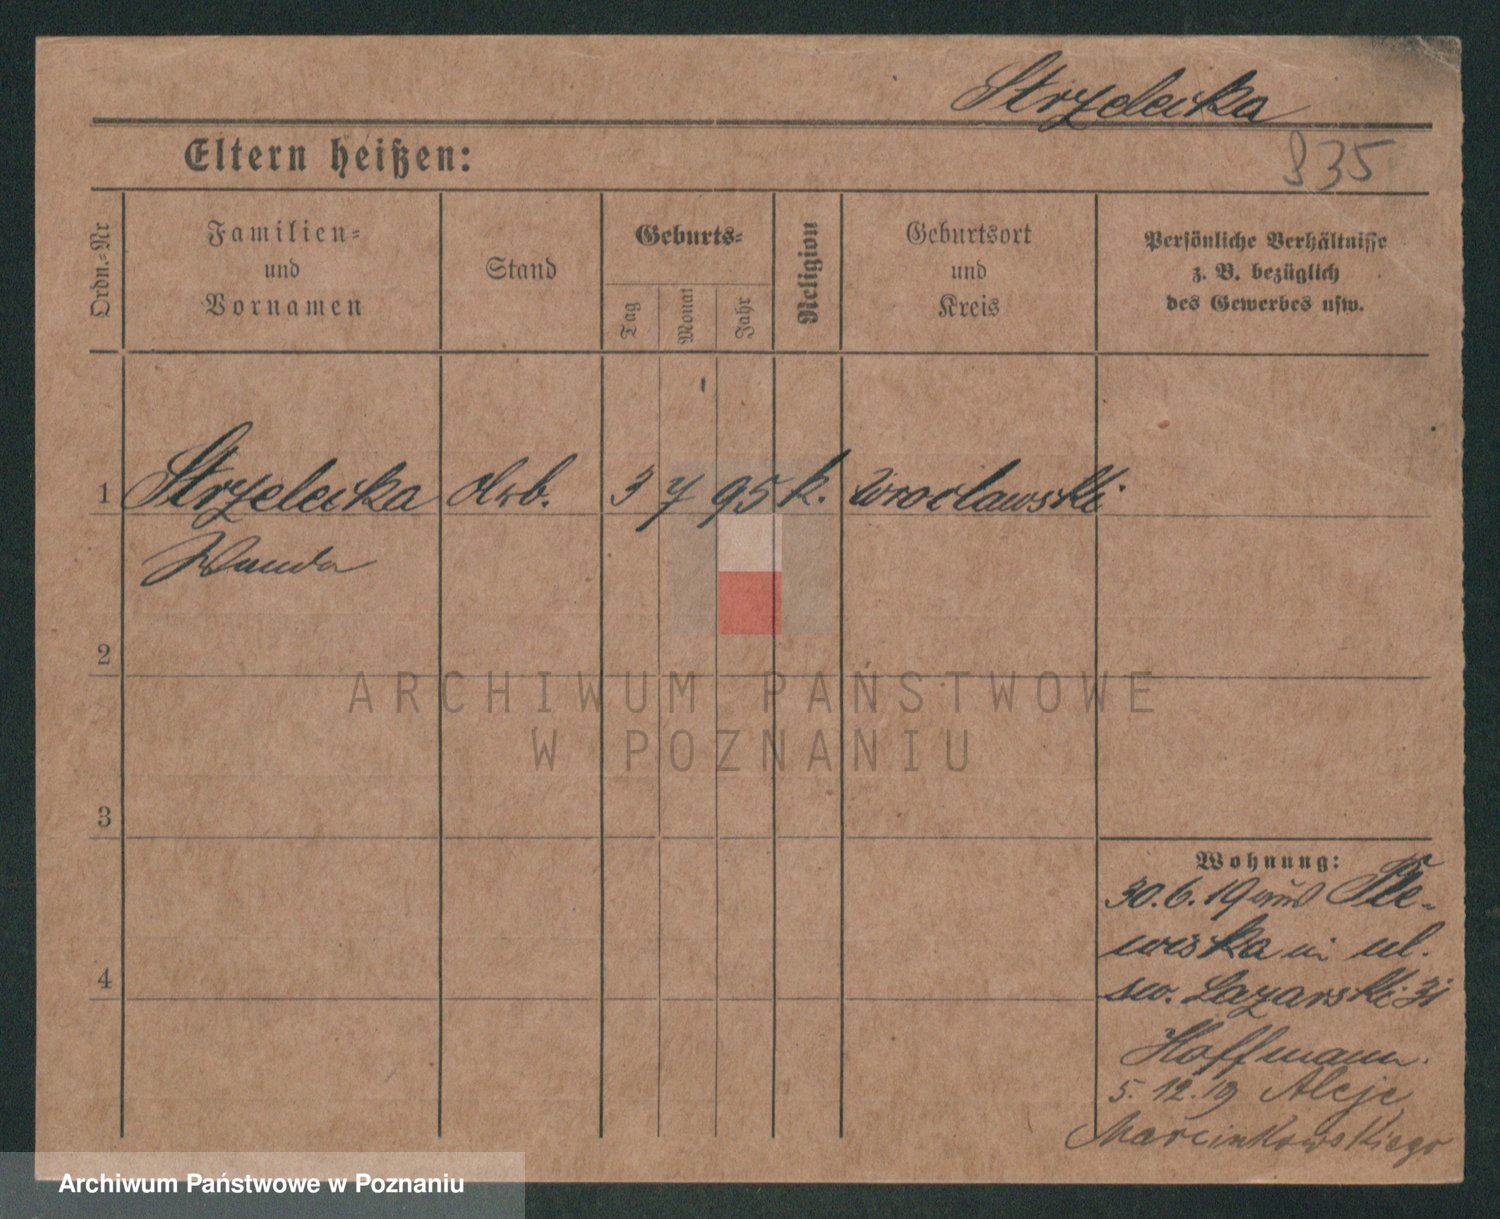 Strzelecka
Eltern heißen:
835
Ordn.-Nr
Familien-
und
Vornamen
Stand
Geburts-
Tag
Monat
Jahr
Religion
Geburtsort
und
Kreis
Persönliche Verhältnisse
z. B. bezüglich
des Gewerbes usw.
1 Strzelecka 3 7 95 k.
Wanda
2
ARCHIWUM PAŃSTWOWE
W POZNANIU
3
Wohnung:
30.6.19
ul.
4
św. Łazarski 31
Hoffmann.
5.12.19 Aleje
Marcinkowskiego
Archiwum Państwowe w Poznaniu